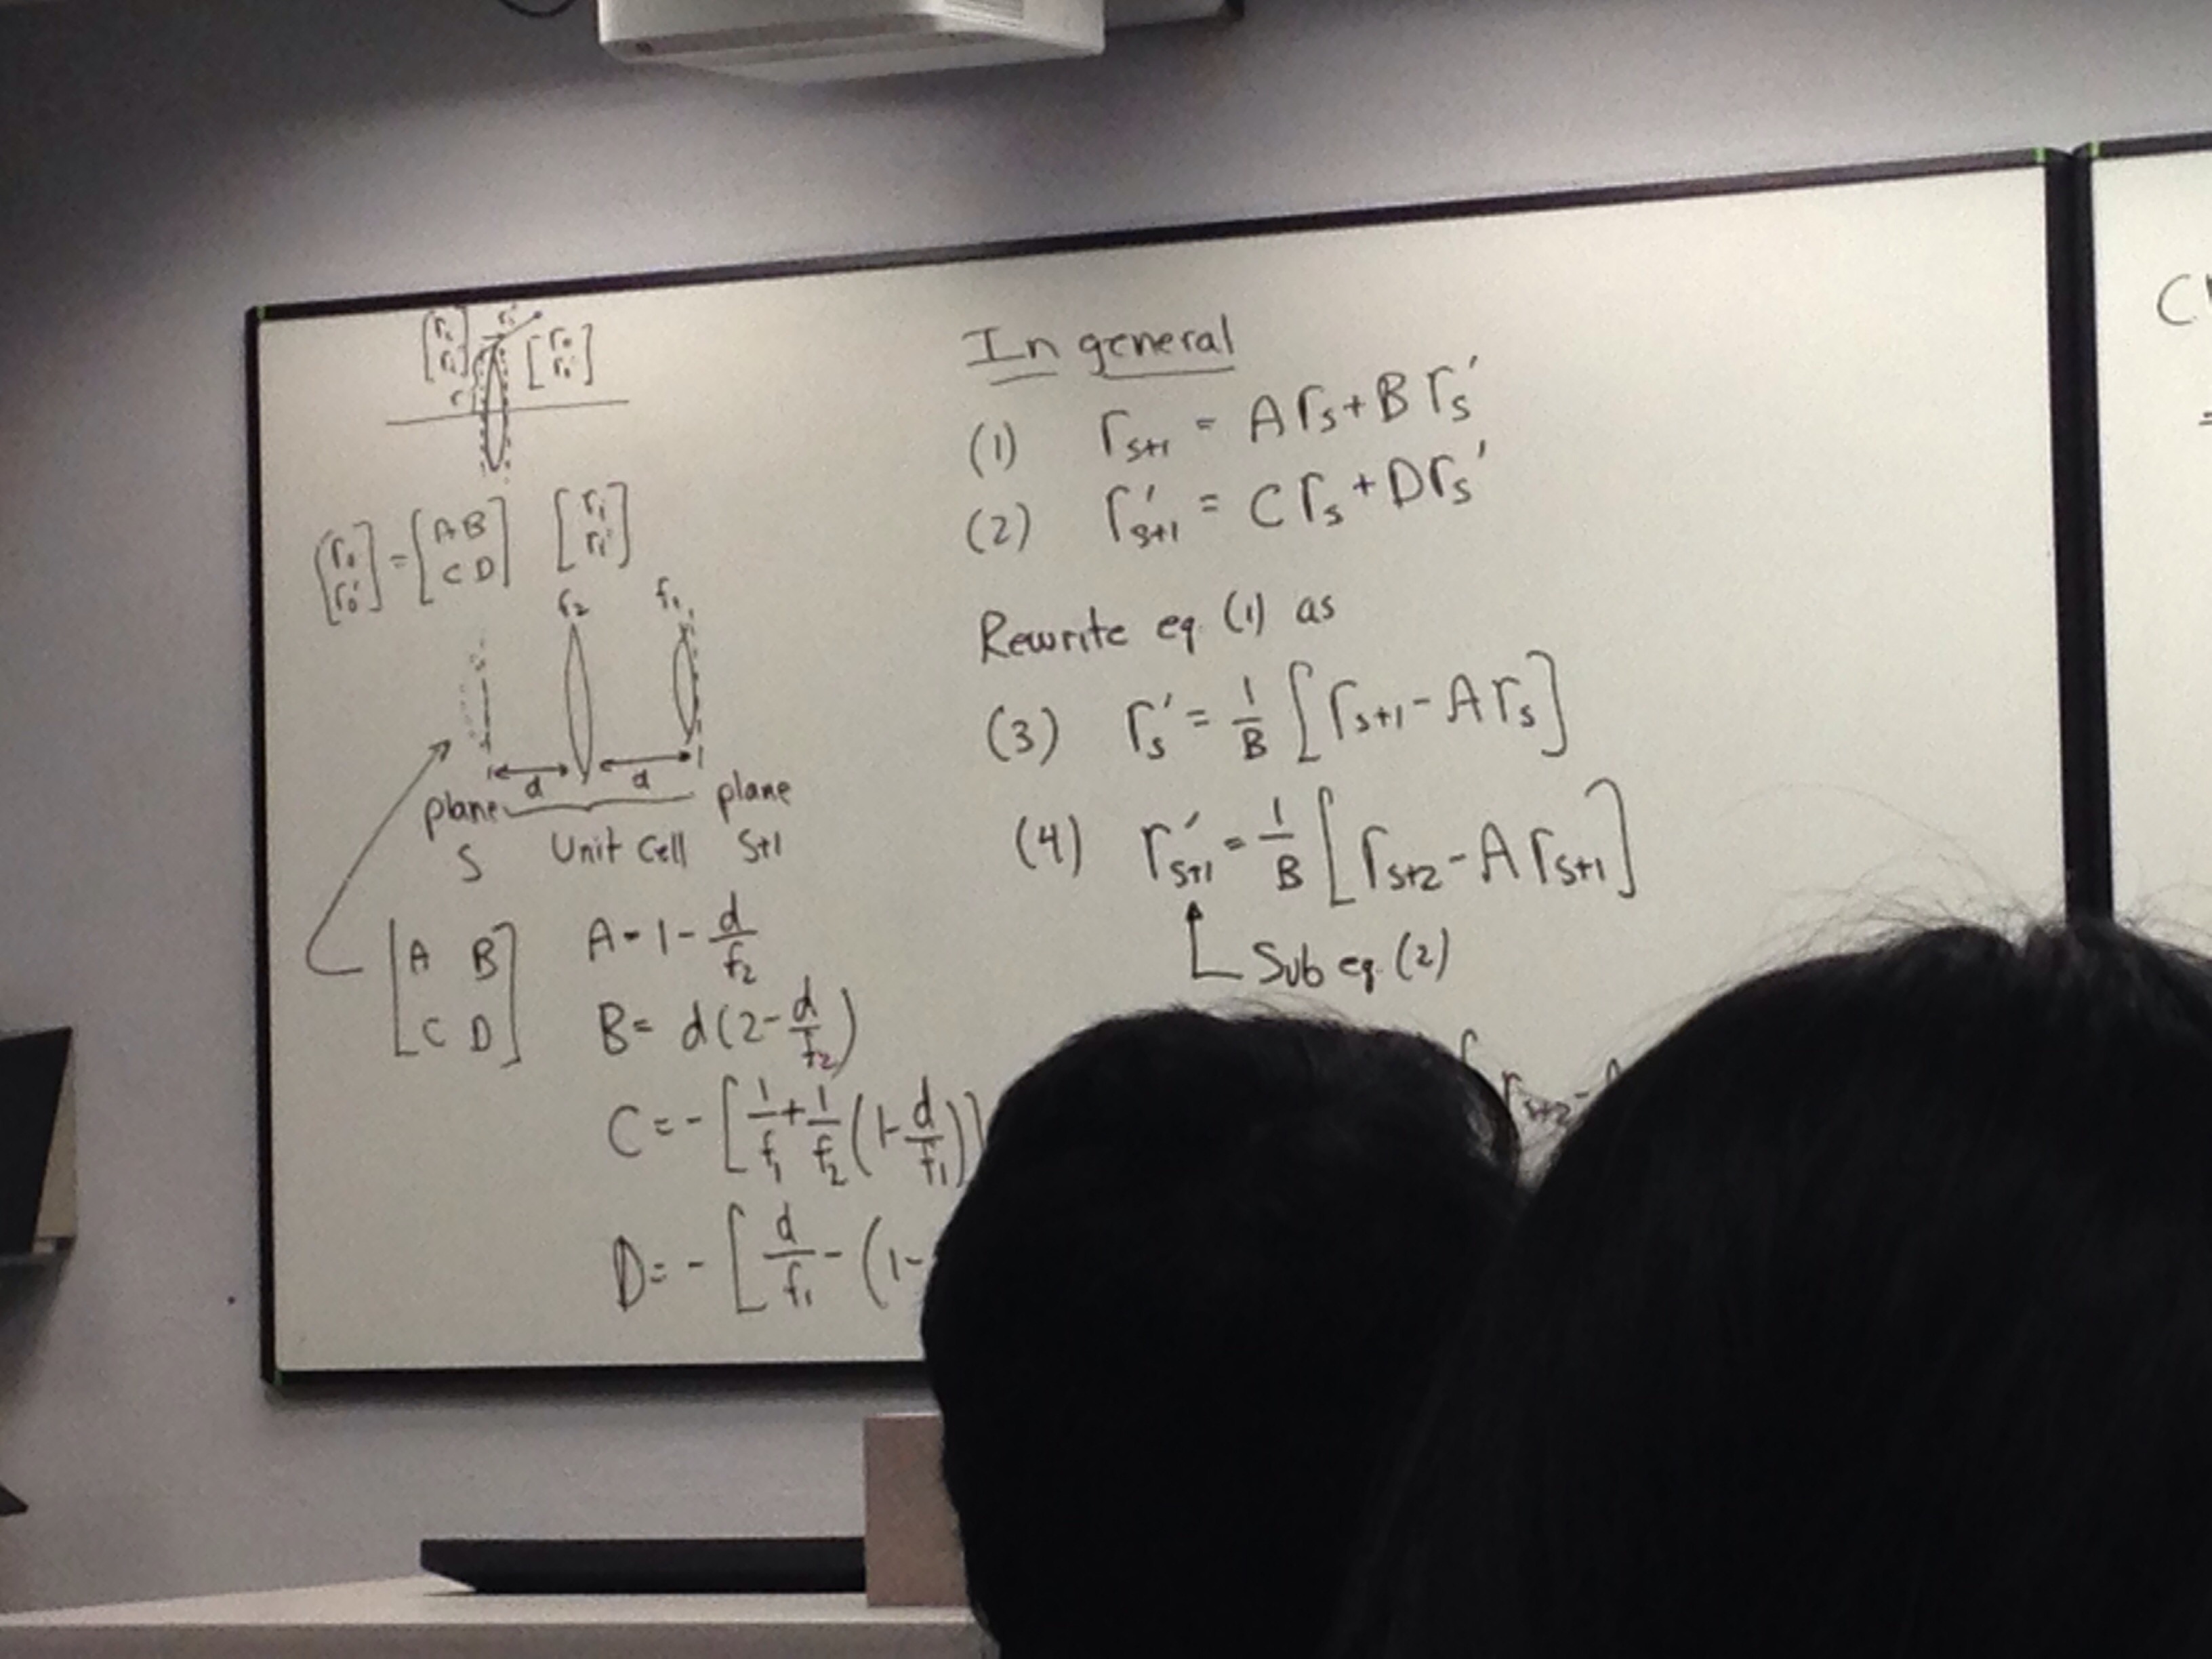 [ri ri'] r' [ro ro']
r
[ro ro'] = [A B C D] [ri ri']
f2 f1
d d
plane S Unit Cell plane S+1
[A B C D] A = 1 - d/f2
B = d(2 - d/f2)
C = - [1/f1 + 1/f2 (1 - d/f1)]
D = - [d/f1 - (1 -
In general
(1) rs+1 = Ars + Brs'
(2) r's+1 = Crs + Drs'
Rewrite eq. (1) as
(3) rs' = 1/B [rs+1 - Ars]
(4) r's+1 = 1/B [rs+2 - Ars+1]
Sub eq. (2)
rs+2 -
C